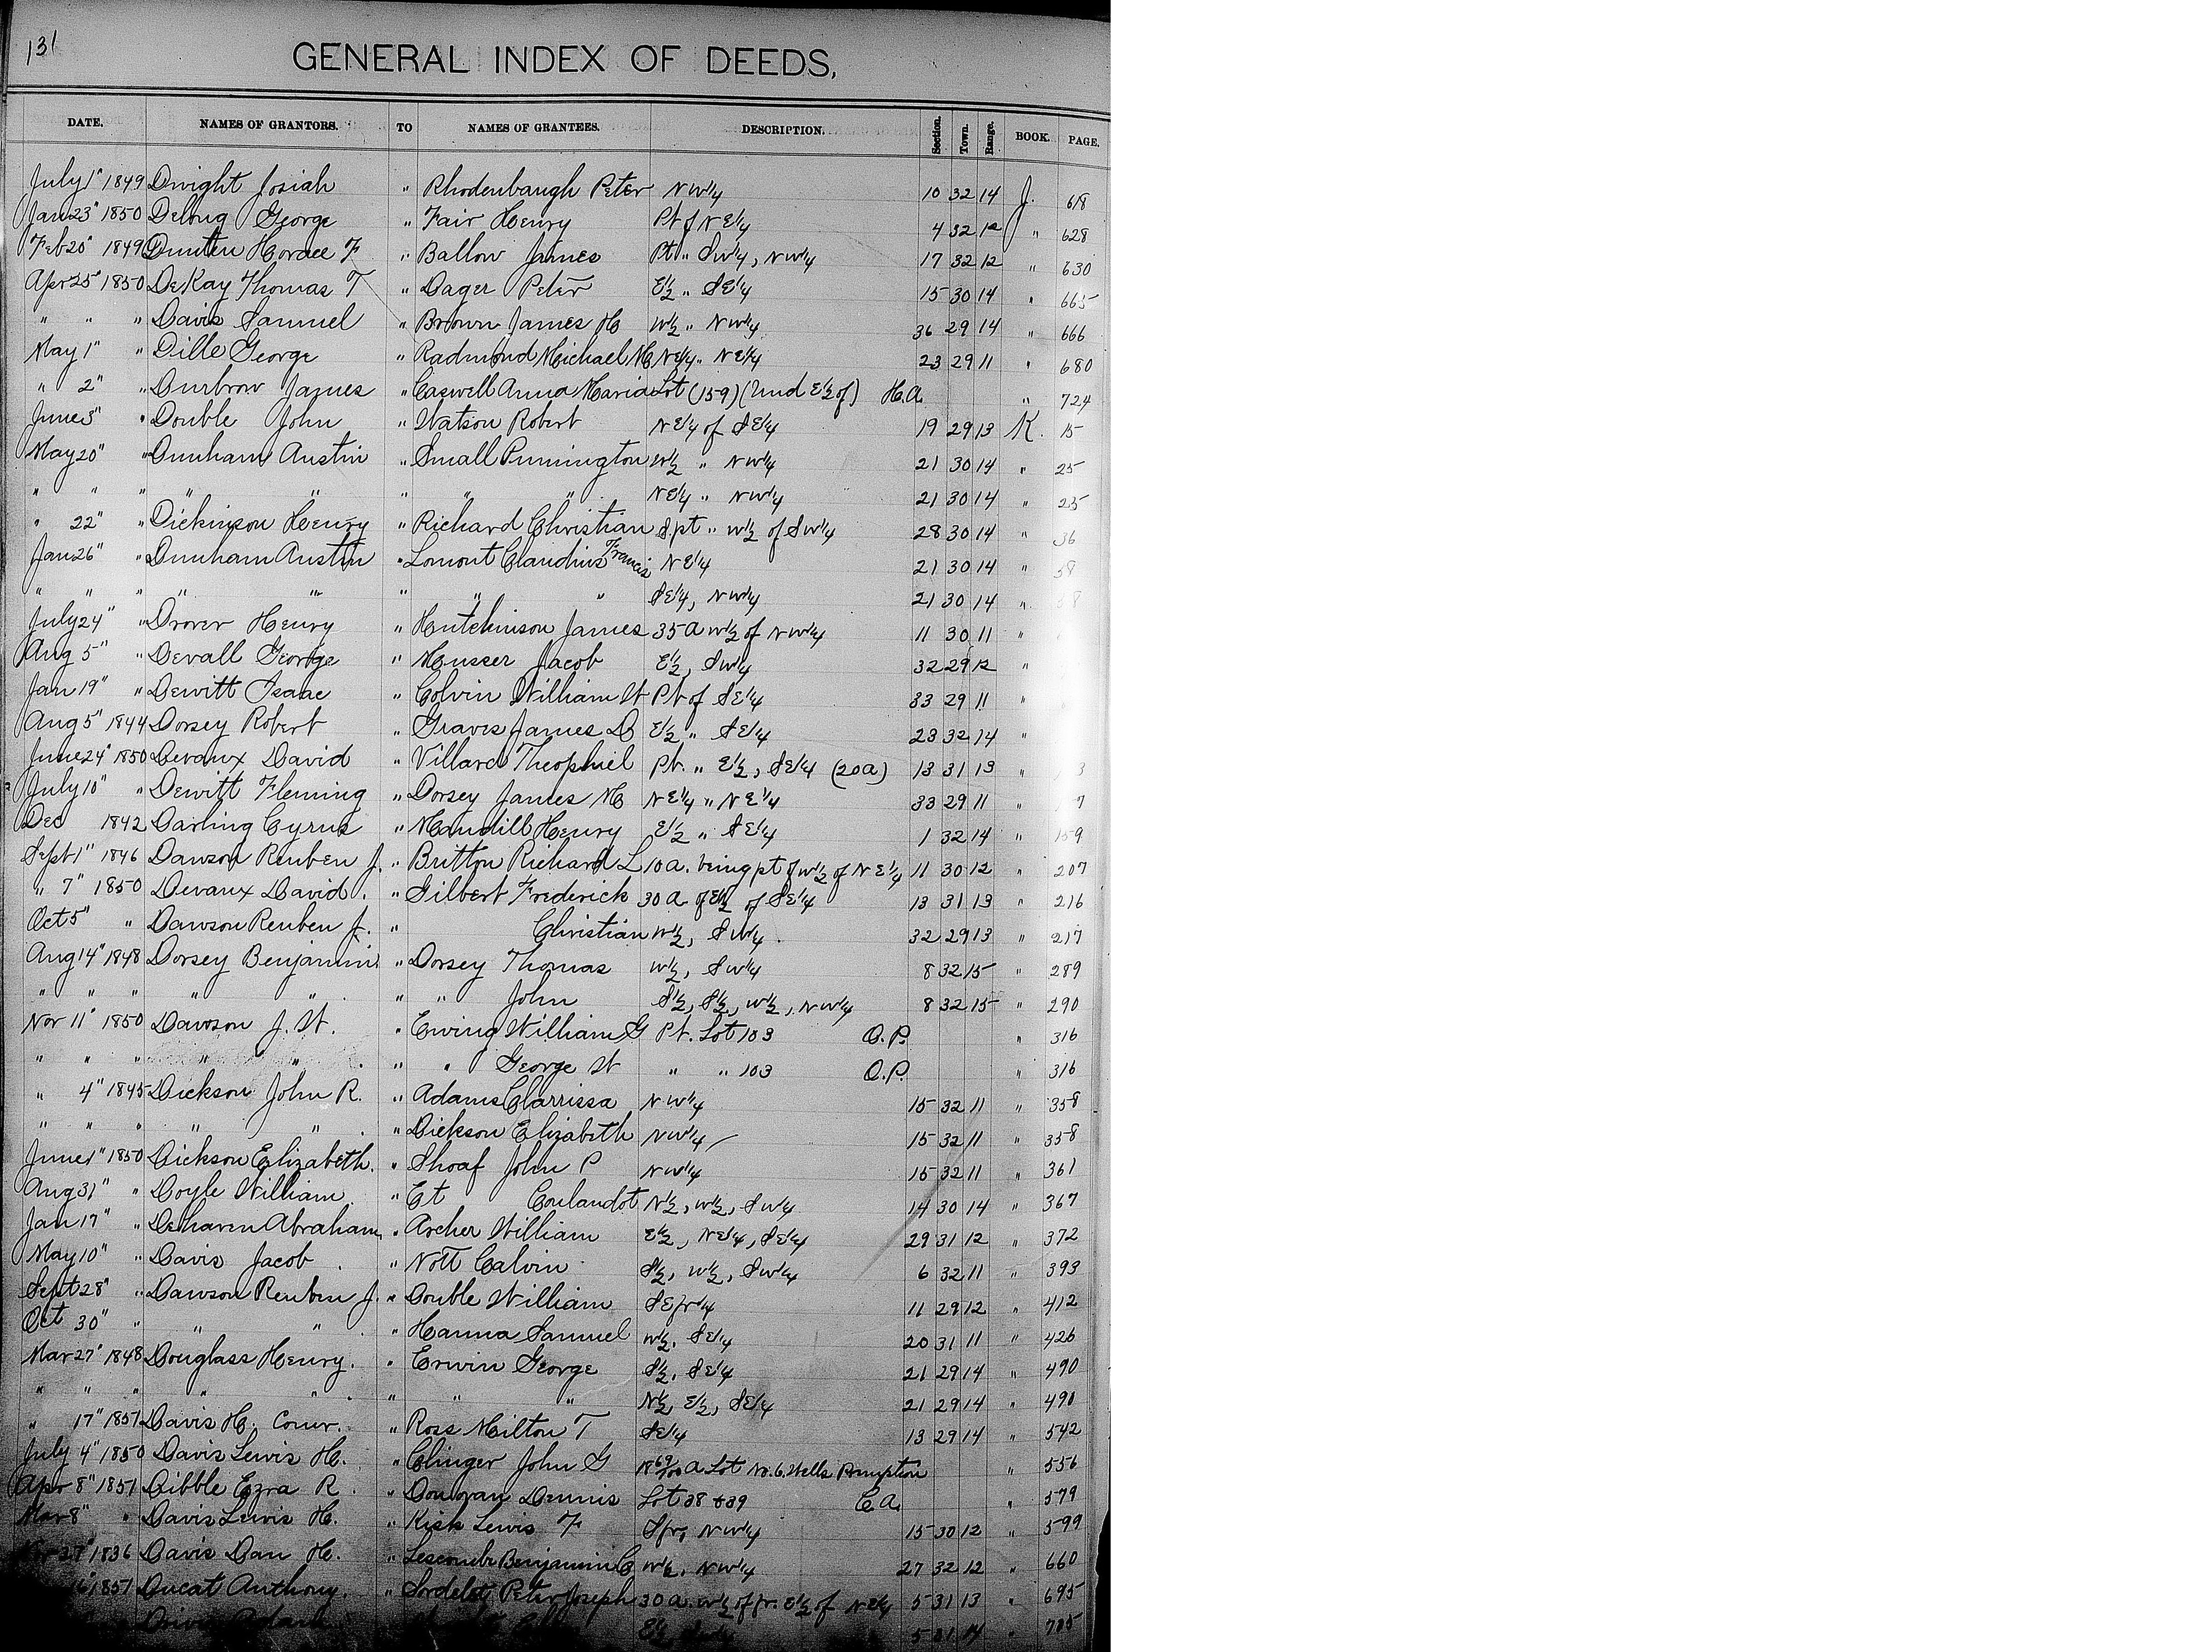 131
GENERAL INDEX OF DEEDS,
DATE. NAMES OF GRANTORS. TO NAMES OF GRANTEES. DESCRIPTION. Section. Town. Range. BOOK. PAGE.
July 1" 1849 Dwight Josiah " Rhodenbaugh Peter NW1/4 10 32 14 J. 618
Jan 23" 1850 Delong George " Fair Henry Pt of NE1/4 4 32 12 " 628
Feb 20" 1849 Dunten Horace F " Ballow James Pt " SW1/4, NW1/4 17 32 12 " 630
Apr 25" 1850 DeKay Thomas T " Dager Peter E1/2 " SE1/4 15 30 14 " 665
" " " Davis Samuel " Brown James H W1/2 " NW1/4 36 29 14 " 666
May 1" " Dille George " Radmond Michael M NE1/4 " NE1/4 23 29 11 " 680
" 2" " Durbrow James " Caswell Anna Maria Lot (159) (Und E1/2 of) H.A. " 724
June 3" " Double John " Watson Robert NE1/4 of SE1/4 19 29 13 K. 15
May 20" " Dunham Austin " Small Punnington W1/2 " NW1/4 21 30 14 " 25
" " " " " " " " NE1/4 " NW1/4 21 30 14 " 25
" 22" " Dickinson Henry " Richard Christian S.pt " W1/2 of SW1/4 28 30 14 " 36
Jan 26" " Dunham Austin " Lomont Claudius Francis NE1/4 21 30 14 " 58
" " " " " " " " SE1/4, NW1/4 21 30 14 " 58
July 24" " Drover Henry " Hutchinson James 35 a W1/2 of NW1/4 11 30 11 "
Aug 5" " Devall George " Musser Jacob E1/2, SW1/4 32 29 12 "
Jan 19" " Dewitt Isaac " Colvin William W Pt of SE1/4 33 29 11 "
Aug 5" 1844 Dorsey Robert " Graves James D E1/2 " SE1/4 23 32 14 "
June 24" 1850 Devaux David " Villard Theophiel Pt. " E1/2, SE1/4 (20a) 13 31 13 " 3
July 10" " Dewitt Fleming " Dorsey James M NE1/4 " NE1/4 33 29 11 " 7
Dec 1842 Darling Cyrus " Maudill Henry E1/2 " SE1/4 1 32 14 " 159
Sept 1" 1846 Dawson Reuben J. " Britton Richard L 10 a. being pt of W1/2 of NE1/4 11 30 12 " 207
" 7" 1850 Devaux David. " Gilbert Frederick 30 a of E1/2 of SE1/4 13 31 13 " 216
Oct 5" " Dawson Reuben J. " Christian W1/2, SW1/4. 32 29 13 " 217
Aug 14" 1848 Dorsey Benjamin " Dorsey Thomas W1/2, SW1/4 8 32 15 " 289
" " " " " " " John S1/2, S1/2, W1/2, NW1/4 8 32 15 " 290
Nov 11" 1850 Dawson J. W. " Ewing William G Pt. Lot 103 O.P. " 316
" " " " " " " George W " " 103 O.P. " 316
" 4" 1845 Dickson John R. " Adams Clarrissa NW1/4 15 32 11 " 358
" " " " " " Dickson Elizabeth NW1/4 15 32 11 " 358
June 1" 1850 Dickson Elizabeth. " Shoaf John P NW1/4 15 32 11 " 361
Aug 31" " Doyle William " Et Coulandot N1/2, W1/2, SW1/4 14 30 14 " 367
Jan 17" " Dehaven Abraham " Archer William E1/2, NE1/4, SE1/4 29 31 12 " 372
May 10" " Davis Jacob " Nott Calvin S1/2, W1/2, SW1/4 6 32 11 " 393
Sept 28" " Dawson Reuben J. " Double William SE fr 1/4 11 29 12 " 412
Oct 30" " " " " Hanna Samuel W1/2, SE1/4 20 31 11 " 426
Mar 27" 1848 Douglass Henry. " Erwin George S1/2, SE1/4 21 29 14 " 490
" " " " " " " " N1/2, E1/2, SE1/4 21 29 14 " 490
" 17" 1851 Davis H. Comr. " Ross Milton T SE1/4 13 29 14 " 542
July 4" 1850 Davis Lewis H. " Clinger John G 18 69/100 a Lot No. 6 Wells Premption " 556
Apr 8" 1851 Dibble Ezra R. " Donovan Dennis Lot 38 &39 C.A. " 579
Mar 8" " Davis Lewis H. " Kisk Lewis F S fr, NW1/4 15 30 12 " 599
27" 1836 Davis Dan H. " Benjamin W1/2, NW1/4 27 32 12 " 660
16" 1851 Ducat Anthony. " Sordelet Peter Joseph 30 a. W1/2 of fr. E1/2 of NE1/4 5 31 13 " 695
E1/2 5 31 14 " 705